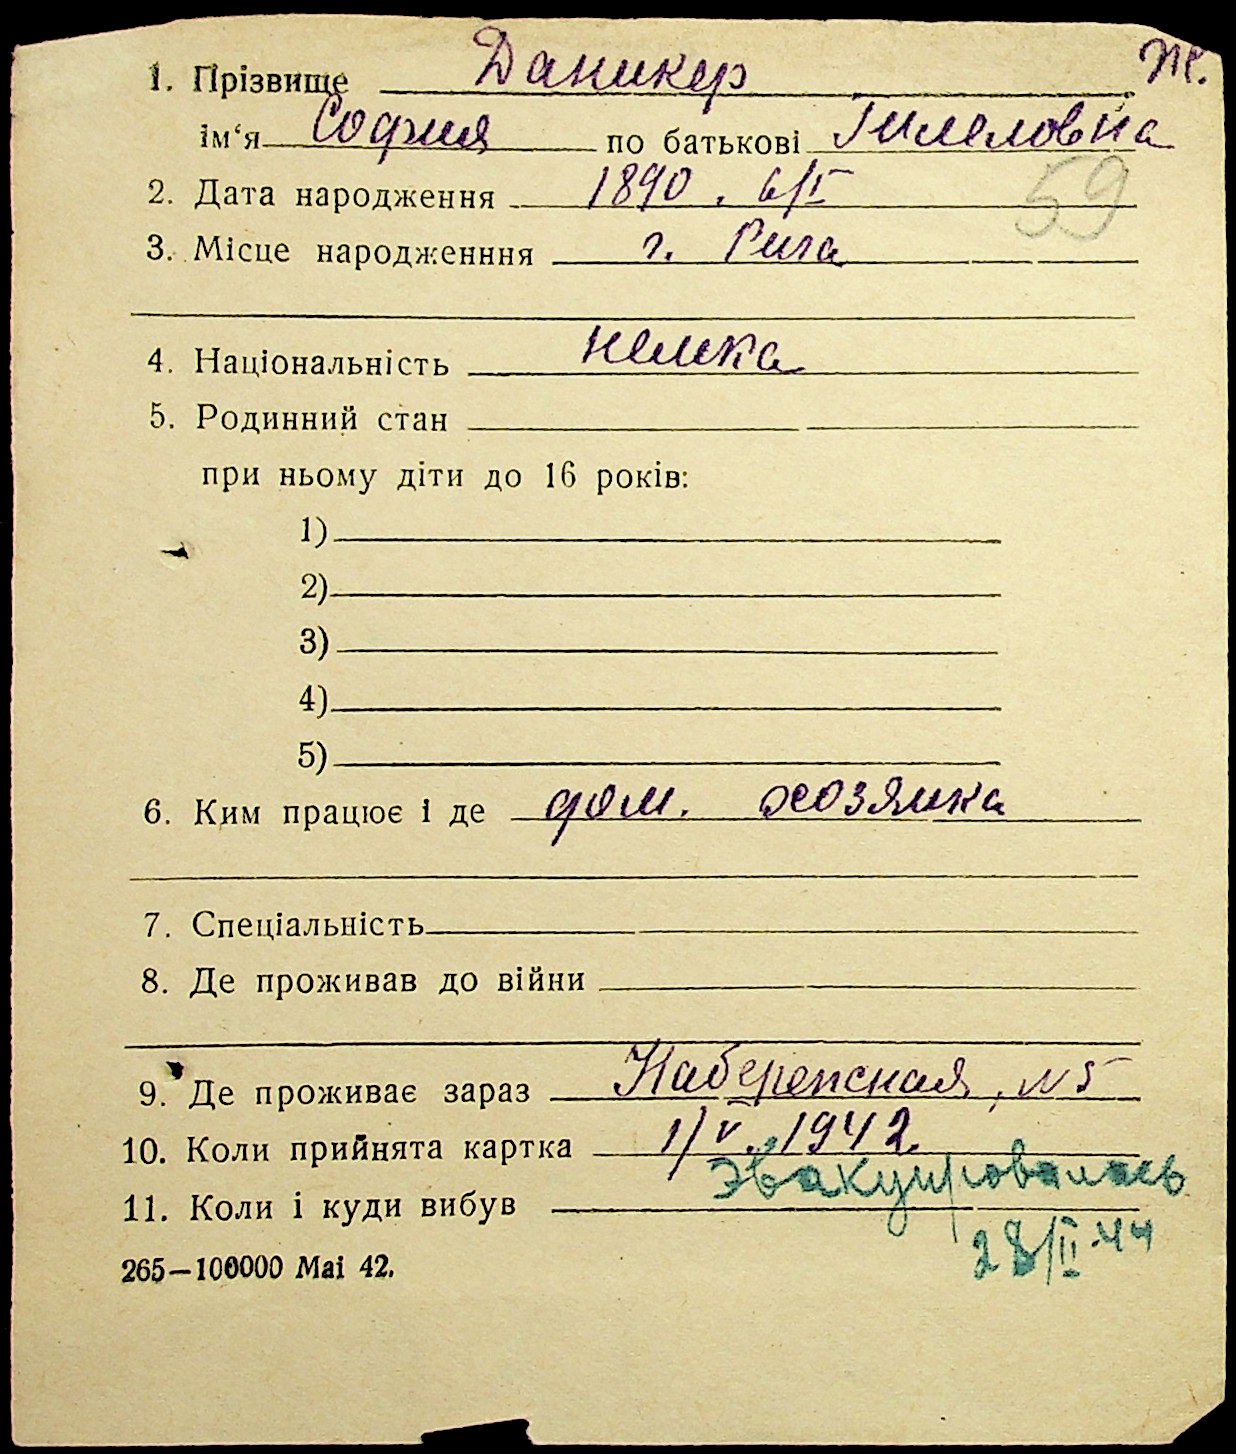 Ж.
1. Прізвище Даникер
ім‘я София по батькові Гилеловна
59
2. Дата народження 1890. 6/I
3. Місце народженння г. Рига
4. Національність немка
5. Родинний стан
при ньому діти до 16 років:
1)
2)
3)
4)
5)
6. Ким працює і де дом. хозяйка
7. Спеціальність
8. Де проживав до війни
9. Де проживає зараз Набережная, N 5
10. Коли прийнята картка 1/V. 1942
11. Коли і куди вибув эвакуировалась
28/II-44
265—100000 Mai 42.